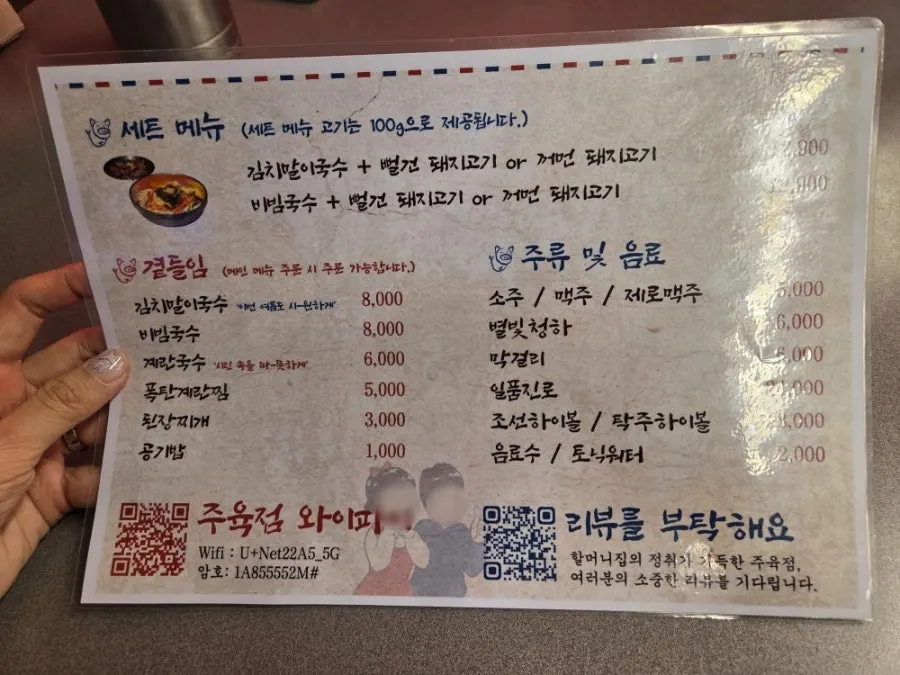 세트 메뉴 (세트 메뉴 고기는 100g으로 제공됩니다.)
김치말이국수 + 뻘건 돼지고기 or 꺼먼 돼지고기
비빔국수 + 뻘건 돼지고기 or 꺼먼 돼지고기
곁들임 (메인 메뉴 주문 시 주문 가능합니다.)
김치말이국수 '이번 여름도 시-원하게' 8,000
비빔국수 8,000
계란국수 '시린 속을 따-뜻하게' 6,000
폭탄계란찜 5,000
된장찌개 3,000
공기밥 1,000
주류 및 음료
소주 / 맥주 / 제로맥주
별빛청하 6,000
막걸리
일품진로
조선하이볼 / 탁주하이볼
음료수 / 토닉워터 2,000
주육점 와이파이
Wifi : U+Net22A5_5G
암호: 1A855552M#
리뷰를 부탁해요
할머니집의 정취가 가득한 주육점,
여러분의 소중한 리뷰를 기다립니다.